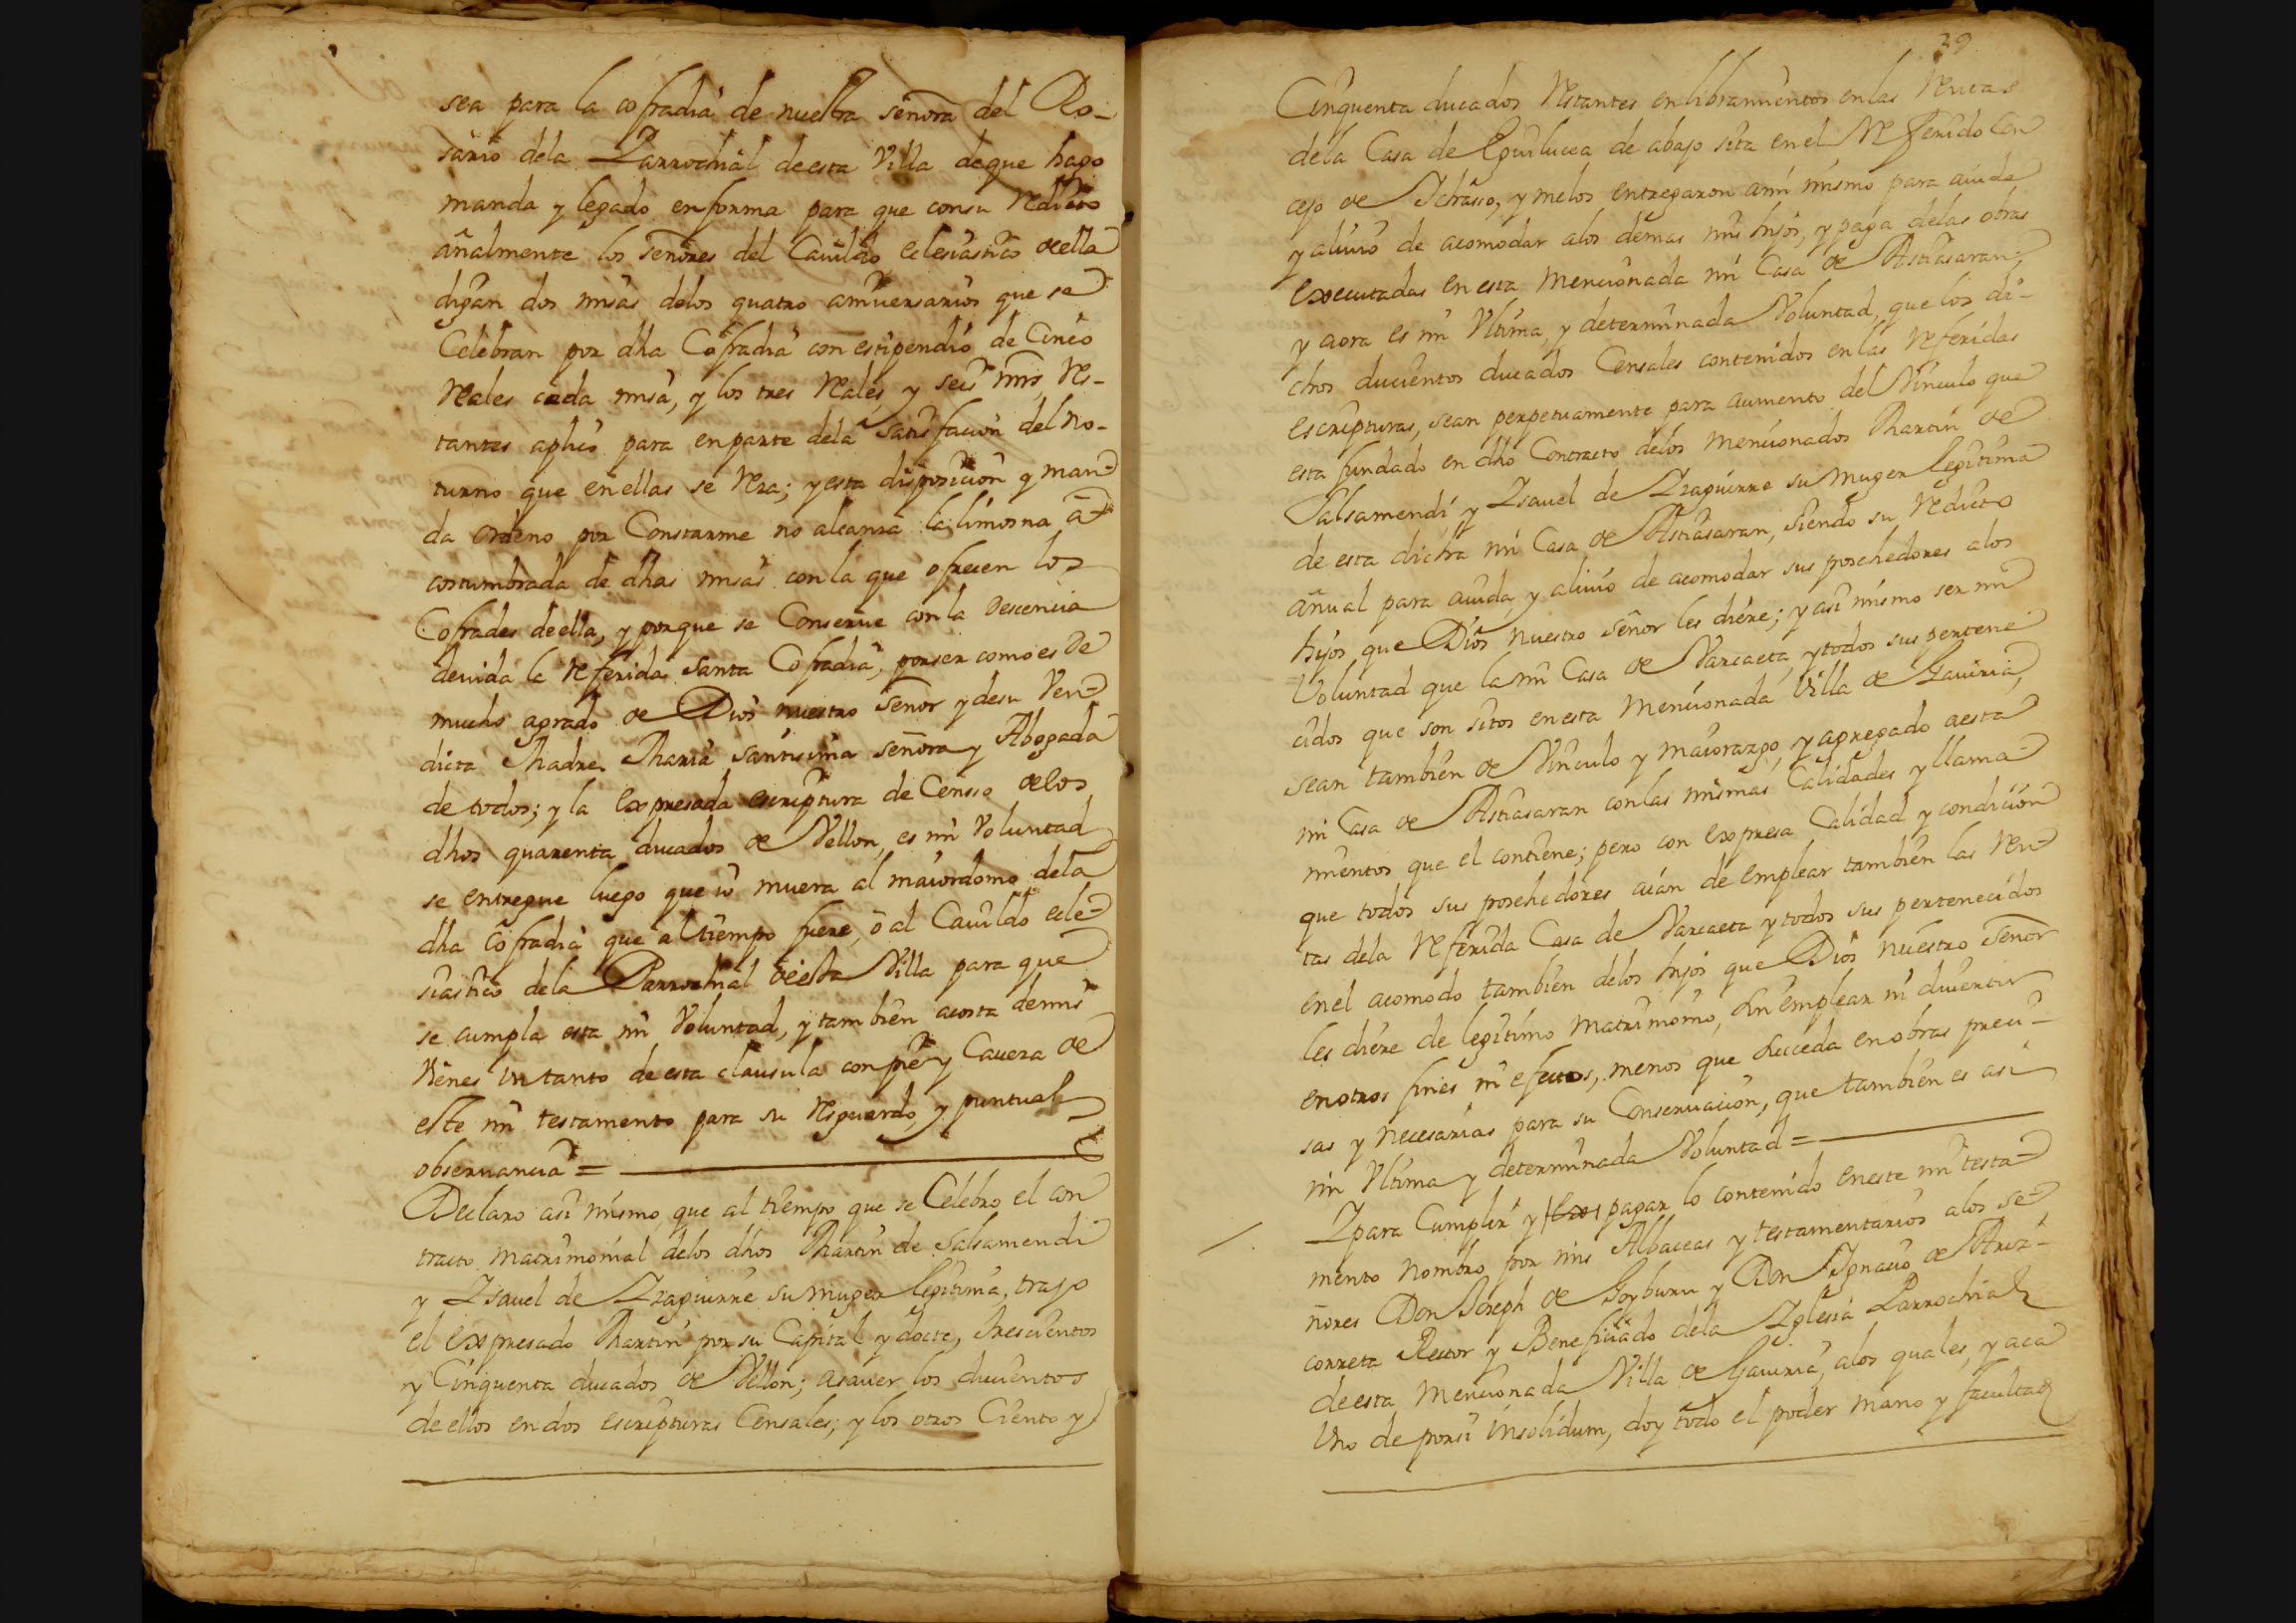 sea para la cofradia de nuestra señora del Ro-
sario dela Parrochial deesta Villa deque hago
manda y legado enforma para que consu Redito
añalmente los señores del Cauildo eclesiastico deella
digan dos misas delos quatro aniuersarios que se
Celebran por dha Cofradia con estipendio de Cinco
Reales cada misa, y los tres Reales, y seis mrs, Res-
tantes aplico para enparte dela satisfacion del no-
turno que enellas se Reza; yesta disposicion y man-
da ordeno por Constarme no alcanza la limosna a-
costumbrada de dhas misas con la que ofrecen los
Cofrades deella, y porque se Conserue con la descencia
deuida la Referida Santa Cofradia, porser como es de
mucho agrado de Dios nuestro señor ydesu Ven-
dita Madre Maria Santisima señora y Abogada
de todos; y la expresada escriptura de Censso delos
dhos quarenta ducados de Vellon, es mi Voluntad
se entregue luego que io muera al maiordomo dela
dha Cofradia que altiempo fuere, o al Cauildo ecle-
siastico dela Parrochial deesta Villa para que
se cumpla esta mi Voluntad, ytambien acosta demis
Vienes Vn tanto deesta clausula con pie y Caueza de
este mi testamento para su Resguardo, y puntual
obseruancia =
Declaro asi mismo que al tiempo que se Celebro el con
tracto matrimonial delos dhos Martin de Salsamendi
y Isauel de Izaguirre su muger legitima, trajo
el expresado Martin por su Capital y docte, trescientos
y Cinquenta ducados de Vellon; asauer los ducientos
de ellos endos escripturas Censales; y los otros Ciento y
39
Cinquenta ducados Restantes enlibramientos enlas Rentas
dela Casa de Eguilucea de abajo sita enel Referido Con
cejo de Ichasso, y melos entregaron ami mismo para aiuda
y aliuio de acomodar alos demas mis hijos, y paga delas obras
executadas enesta mencionada mi Casa de Astiasaran;
y aora es mi Vltima, y determinada Voluntad, que los di-
chos ducientos ducados Censales contenidos enlas Referidas
escripturas, sean perpetuamente para aumento del Vinculo que
esta fundado en dho Contracto delos mencionados Martin de
Salsamendi y Isauel de Izaguirre su muger legitima
de esta dicha mi Casa de Astiasaran, siendo su Redito
añual para aiuda y aliuio de acomodar sus poshedores alos
hijos que Dios nuestro señor les diere; y asi mismo ser mi
Voluntad que la mi Casa de Varcaeta ytodos sus pertene
cidos que son sitos enesta mencionada Villa de Gauiria,
sean tambien de Vinculo y maiorazgo, y agregado aesta
mi Casa de Astiasaran conlas mismas Calidades y llama-
mientos que el contiene; pero con expresa Calidad y condicion
que todos sus poshedores aian de emplear tambien las Ren-
tas dela Referida Casa de Varcaeta ytodos sus pertenecidos
enel acomodo tambien delos hijos que Dios nuestro señor
les diere de legitimo matrimonio, sin emplear ni diuertir
enotros fines ni efectos, menos que suceda enobras preci-
sas y necesarias para su Conseruacion, que tambien es asi
mi Vltima y determinada Voluntad =
Ipara Cumplir y pagar lo contenido eneste mi testa-
mento nombro por mis Albaceas y testamentarios alos se-
ñores Don Joseph de Goyburu y Don Ignacio de Ariz-
correta Rector y Beneficiado dela Iglesia Parrochial
deesta mencionada Villa de Gauiria, alos quales, y aca
Vno de porsi insolidum, doy todo el poder mano y facultad